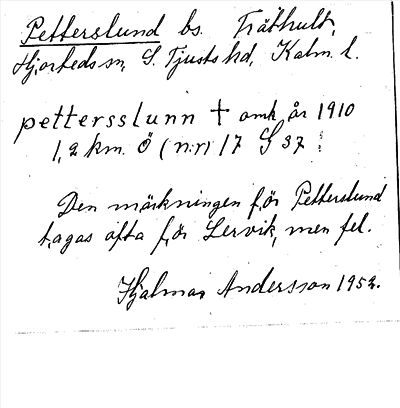 Petterslund bs. Träthult,
Hjorteds sn, S. Tjusts hd, Kalm. l.
pettersslunn † omk. år 1910
1,2 km. Ö (n:r) 17 S 37
Den märkningen för Petterslund
tagas ofta för Lervik, men fel.
Hjalmar Andersson 1952.